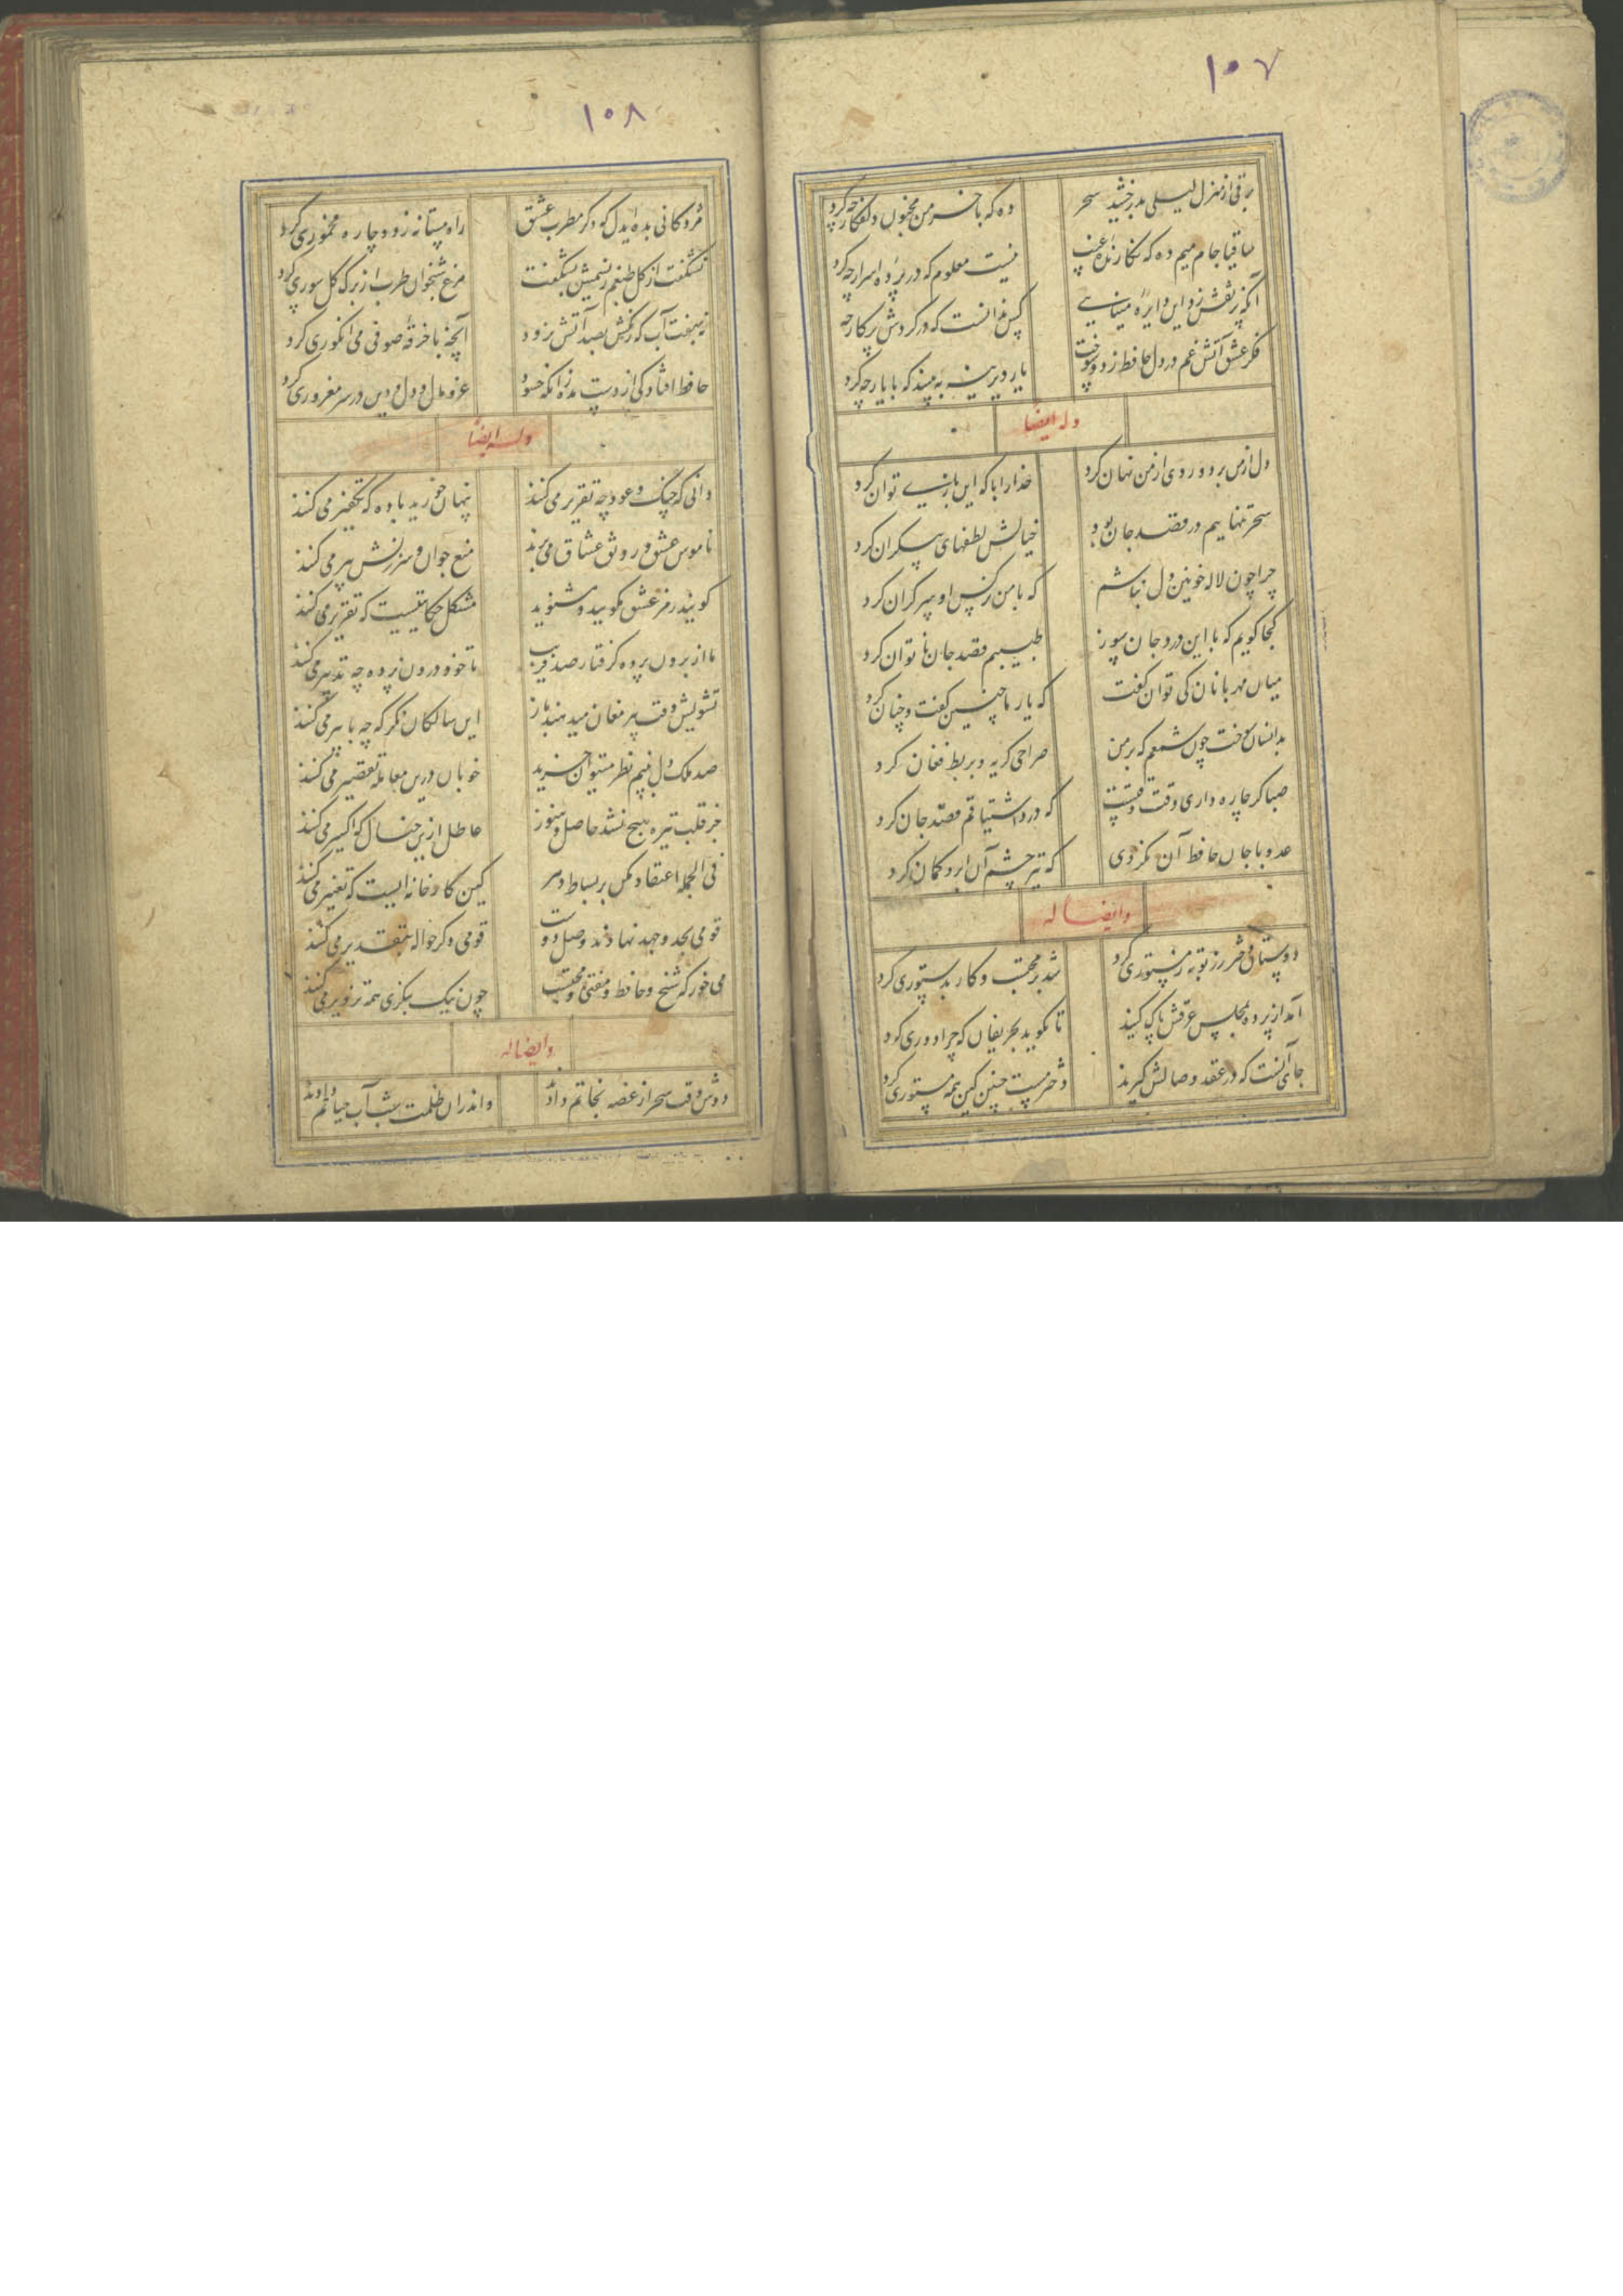 ۱۰۷
برقی از منزل لیلی بدرخشید سحر
وه که با خرمن مجنون دل افکار چه کرد
ساقیا جام میم ده که نکارنده غیب
نیست معلوم که در پرده اسرار چه کرد
آنکه پر نقش زد این دایره مینایی
کس ندانست که در کردش پرکار چه کرد
فکر عشق آتش غم در دل حافظ زد و سوخت
یار دیرینه به بینید که با یار چه کرد
وله ایضا
دل از من برد و روی از من نهان کرد
خدا را با که این بازی توان کرد
سحر تنهاییم در قصد جان بود
خیالش لطفهای بیکران کرد
چرا چون لاله خونین دل نباشم
که با من نرکس او سر کران کرد
کجا کویم که با این درد جان سوز
طبیبم قصد جان ناتوان کرد
میان مهربانان کی توان کفت
که یار ما چنین کفت و چنان کرد
بدانسان سوخت چون شمعم که بر من
صراحی کریه و بربط فغان کرد
صبا کر چاره داری وقت وقتست
که درد اشتیاقم قصد جان کرد
عدو با جان حافظ آن نکردی
که تیر چشم آن ابرو کمان کرد
وایضا له
دوستان دختر رز توبه ز مستوری کرد
شد بر محتسب و کار بدستوری کرد
آمد از پرده بمجلس عرقش پاک کنید
تا نکوید بحریفان که چرا دوری کرد
جای آنست که در عقد وصالش کیرند
دختر مست چنین کین همه مستوری کرد
۱۰۸
مژدکانی بده ایدل که دکر مطرب عشق
راه مستانه زد و چاره مخموری کرد
نشکفت از کل طبعم ز نسیمش بشکفت
مرغ شبخوان طرب از برک کل سوری کرد
نه بهفت آب که رنکش بصد آتش نرود
آنچه با خرقه صوفی می انکوری کرد
حافظ افتادکی از دست مده زانکه حسود
عرض و مال و دل و دین در سر مغروری کرد
وله ایضا
دانی که چنک و عود چه تقریر می کنند
پنهان خورید باده که تکفیر می کنند
ناموس عشق و رونق عشاق می برند
منع جوان و سرزنش پیر می کنند
کویند رمز عشق مکویید و مشنوید
مشکل حکایتیست که تقریر می کنند
ما از برون پرده کرفتار صد فریب
تا خود درون پرده چه تدبیر می کنند
تشویش وقت پیر مغان میدهند باز
این سالکان نکر که چه با پیر می کنند
صد ملک دل بنیم نظر میتوان خرید
خوبان درین معامله تقصیر می کنند
جز قلب تیره هیچ نشد حاصل و هنوز
عاطل ازین خیال که اکسیر می کنند
فی الجمله اعتقاد مکن بر بساط دهر
کین کارخانه ایست که تغییر می کنند
قومی بجد و جهد نهادند وصل دوست
قومی دکر حواله بتقدیر می کنند
می خور که شیخ و حافظ و مفتی و محتسب
چون نیک بنکری همه تزویر می کنند
وایضا له
دوش وقت سحر از غصه نجاتم دادند
واندران ظلمت شب آب حیاتم دادند